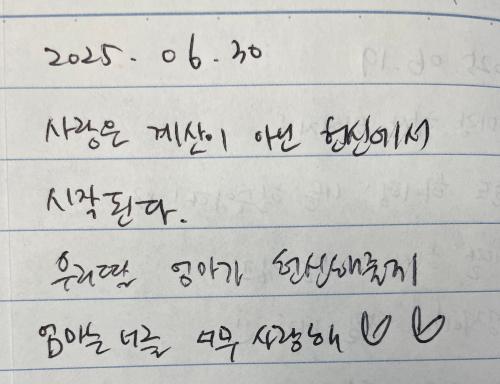 2025. 06. 30
사랑은 계산이 아닌 헌신에서
시작된다.
우리딸 엄마가 헌신해줄게
엄마는 너를 너무 사랑해 ♡♡